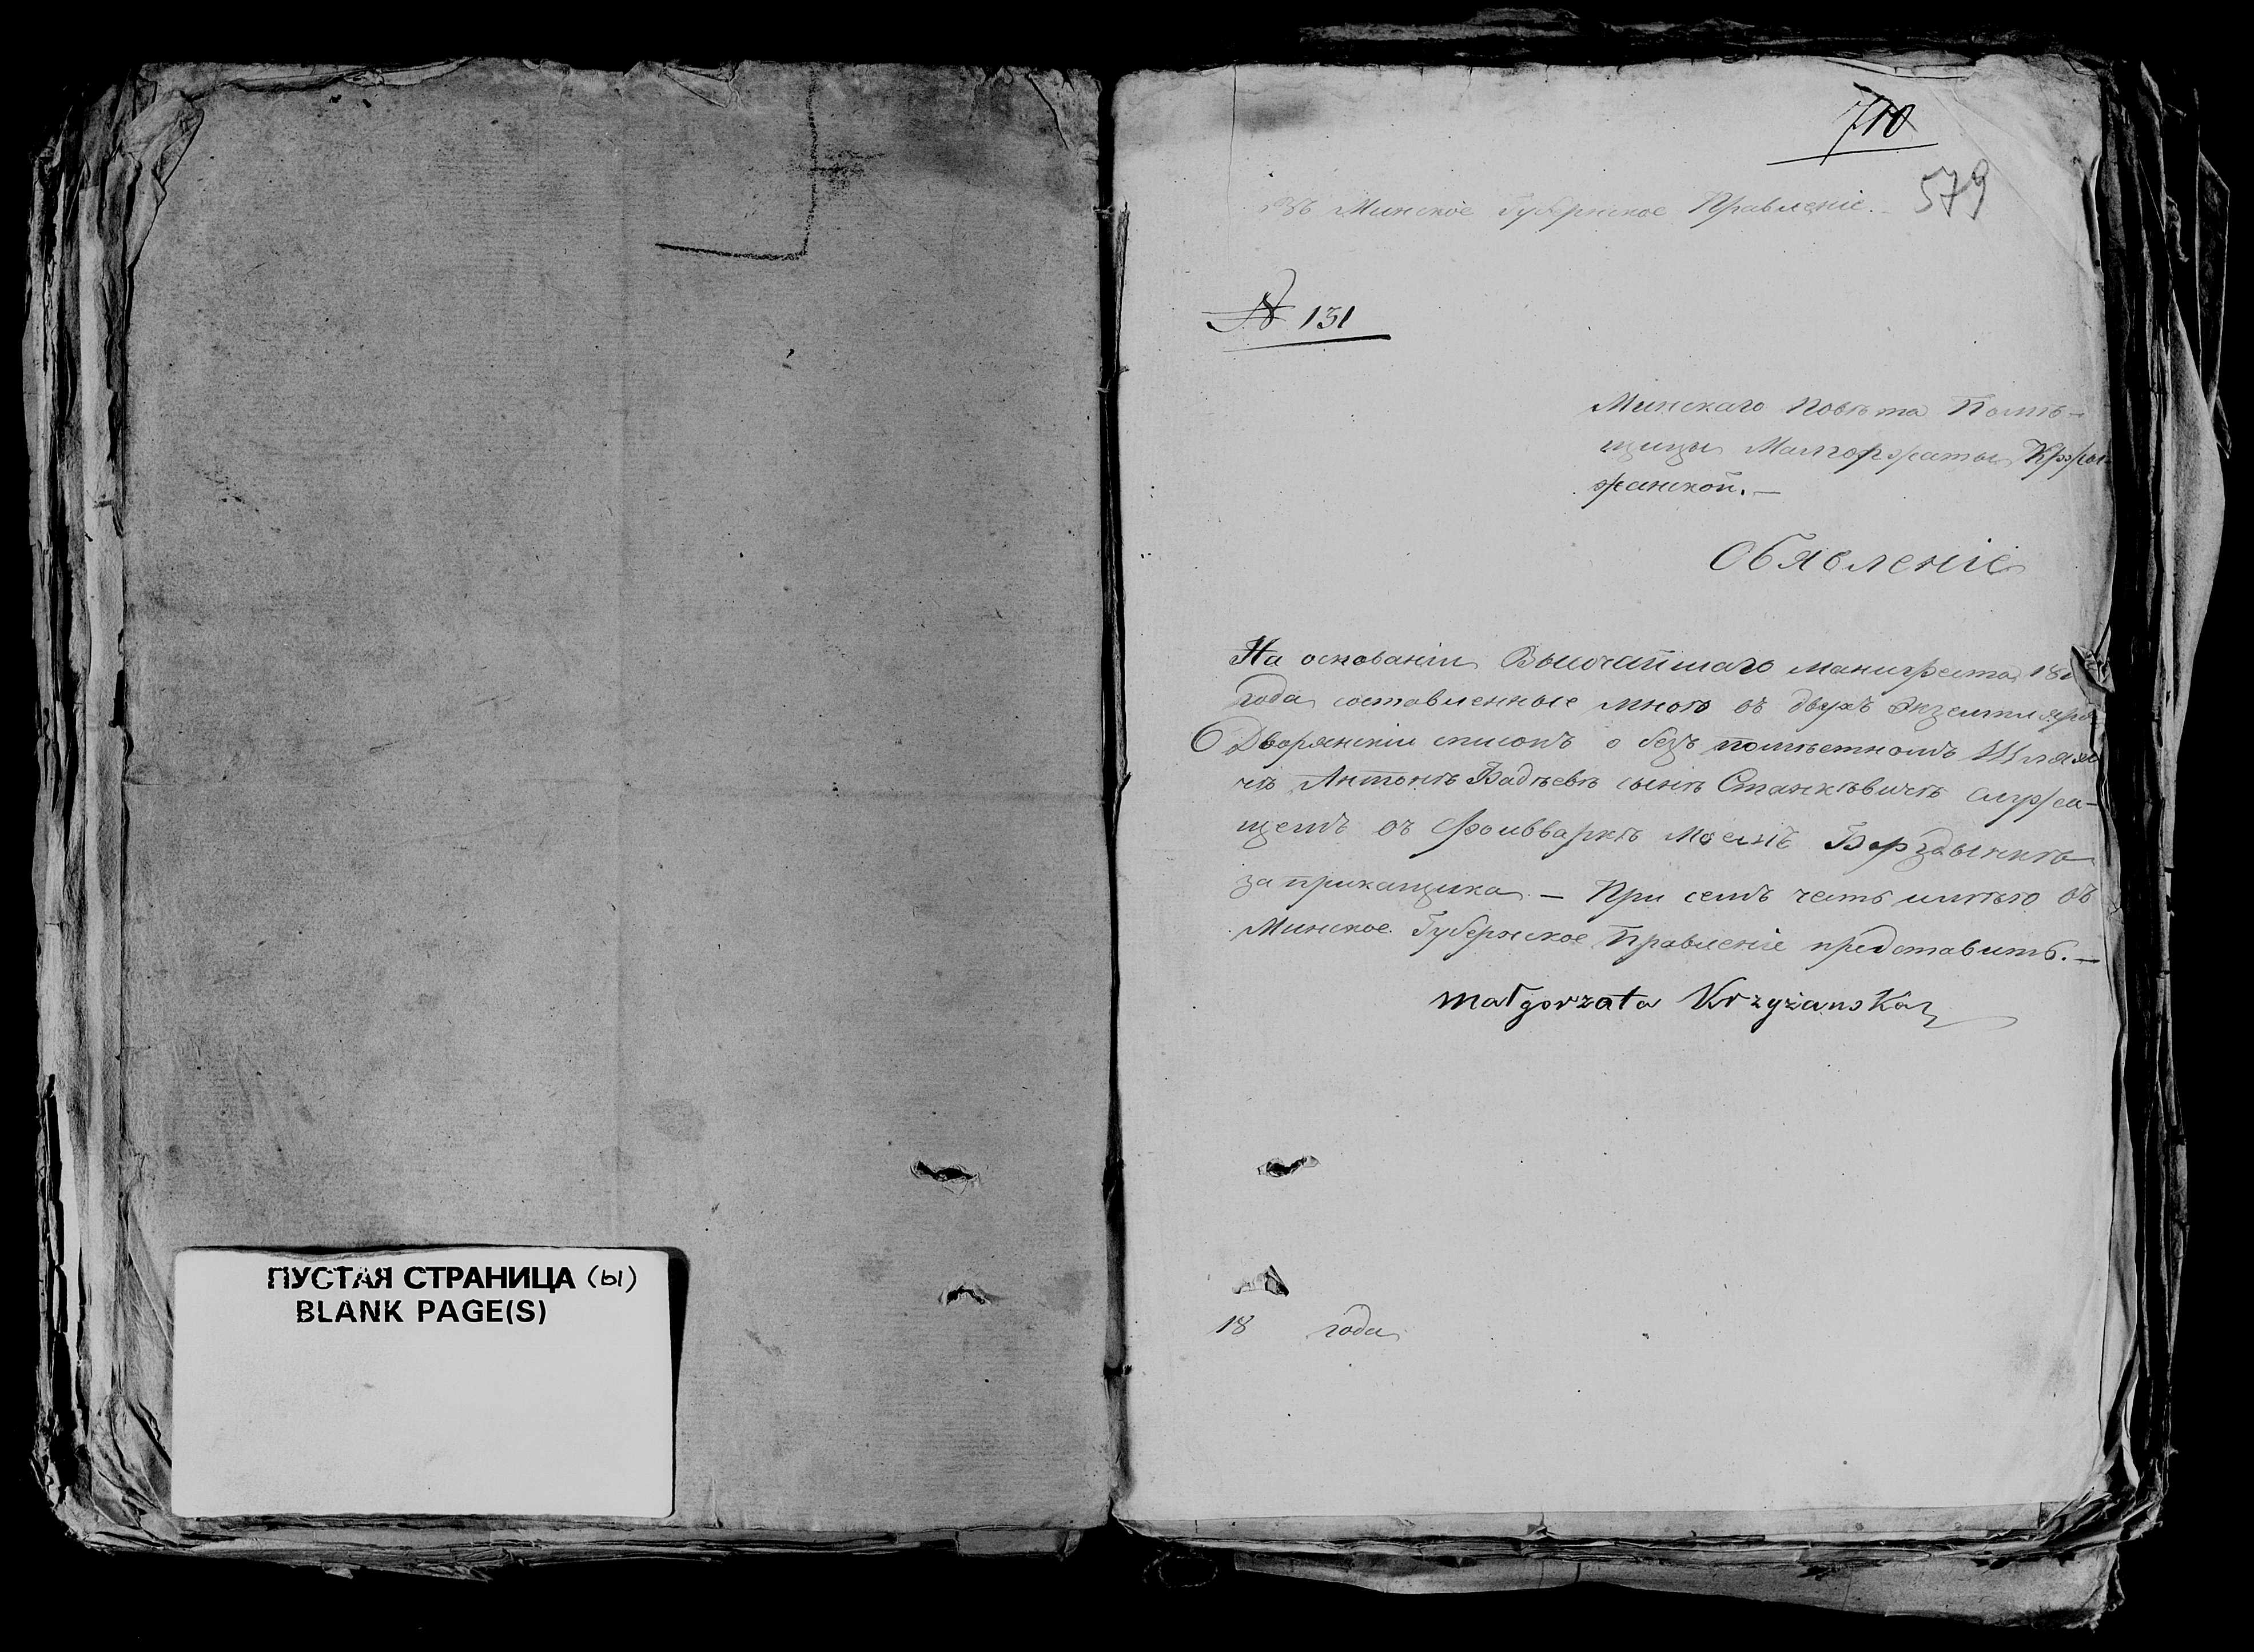 ПУСТАЯ СТРАНИЦА (ы)
BLANK PAGE(S)
710
579
Въ Минское Губернское Правленіе.
№ 131
Минскаго Повѣта Помѣ-
щицы Малгоржаты Кржы-
жанской.—
Обявленіе
На основаніи Высочайшаго манифеста
года составленные мною въ двухъ Экземпляра
Дворянскіи списокъ о безъ помѣстномъ
чѣ Антонѣ Фадѣевѣ сынѣ Станкѣвичѣ служа-
щемъ въ Фольваркѣ моемъ
за прикащика — При семъ честь имѣю въ
Минское Губернское Правленіе представить.—
Małgorzata Krzyżanska
18 года